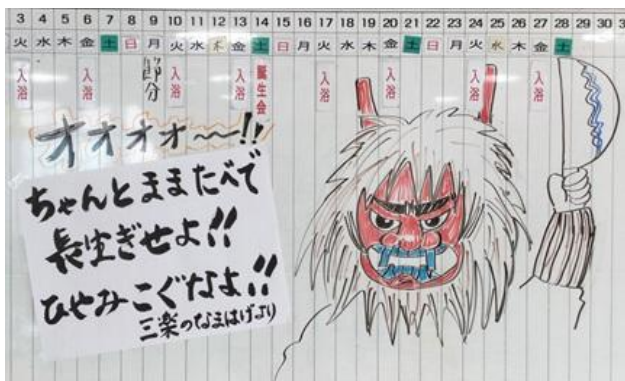 3 4 5 6 7 8 9 10 11 12 13 14 15 16 17 18 19 20 21 22 23 24 25 26 27 28 29 30
火 水 木 金 土 日 月 火 水 木 金 土 日 月 火 水 木 金 土 日 月 火 水 木 金 土
入浴 入浴 節分 入浴 入浴 誕生会 入浴 入浴 入浴 入浴
オォォォ〜〜!!
ちゃんとままたべで
長生ぎせよ!!
ひやみこぐなよ!!
三楽のなまはげより